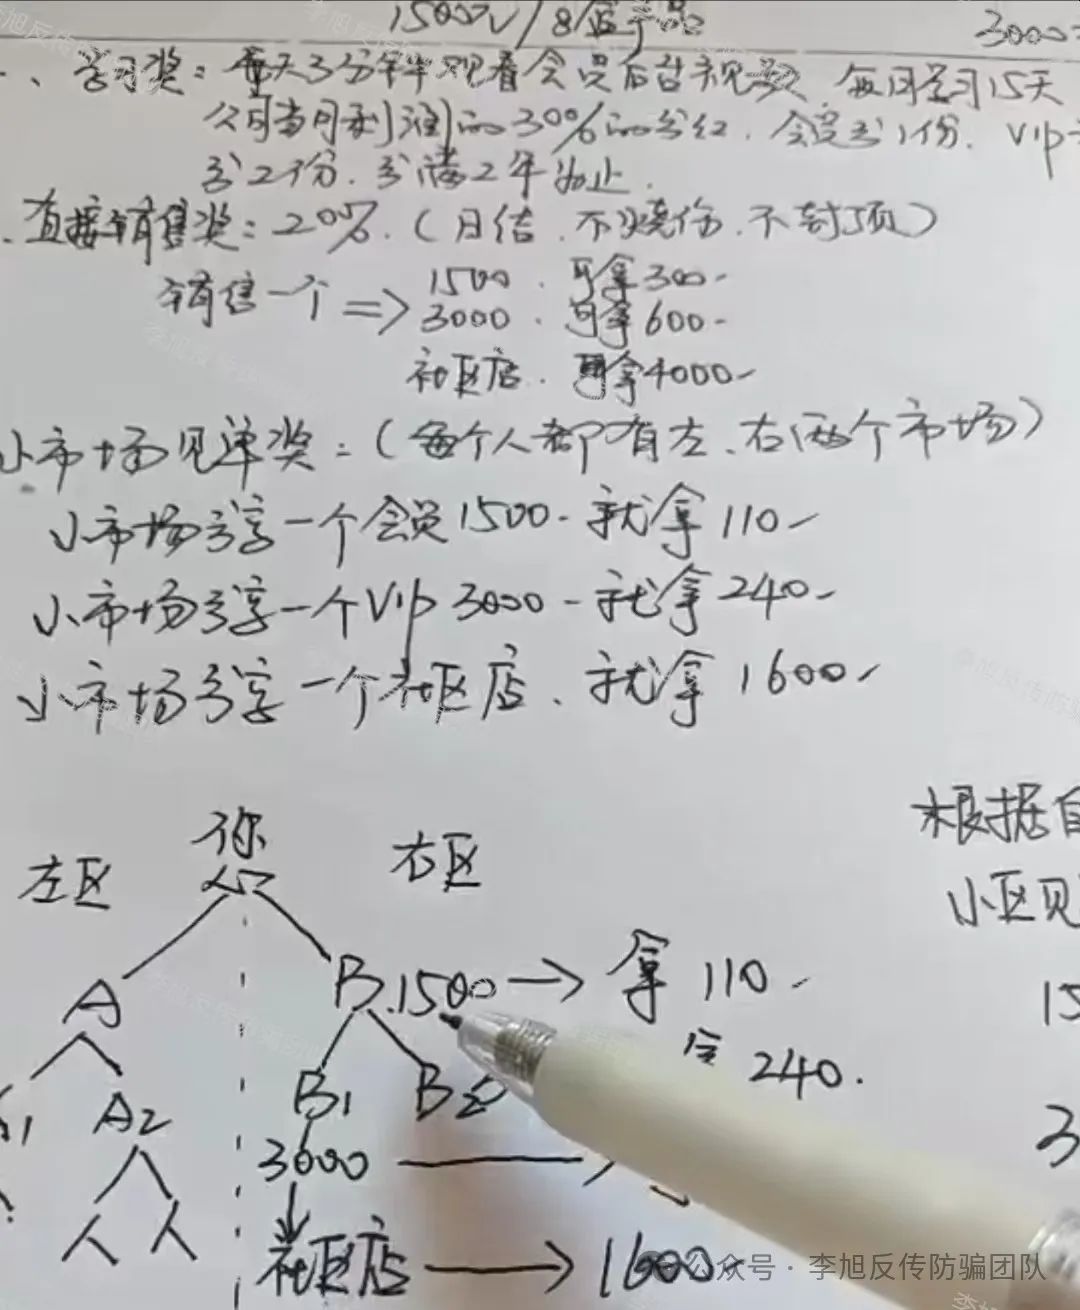 1500元/8
3000
学习奖：每天3分钟观看会员后台视频、每月学习15天
公司当月利润的30%的分红．会员分1份．Vip
分2份．分满2年为止．
直接销售奖：20%．（月结．不烧伤．不封顶）
销售一个 => 1500．可拿300-
3000．可拿600-
社区店．可拿4000-
小市场见单奖：（每个人都有左、右两个市场）
小市场分享一个会员1500-就拿110-
小市场分享一个Vip 3000-就拿240-
小市场分享一个社区店、就拿1600-
根据
你
左区 右区
小区见
A B.1500 → 拿110-
15
240.
A2 B1 B2
3000
人 人
社区店 → 1600-
公众号·李旭反传防骗团队